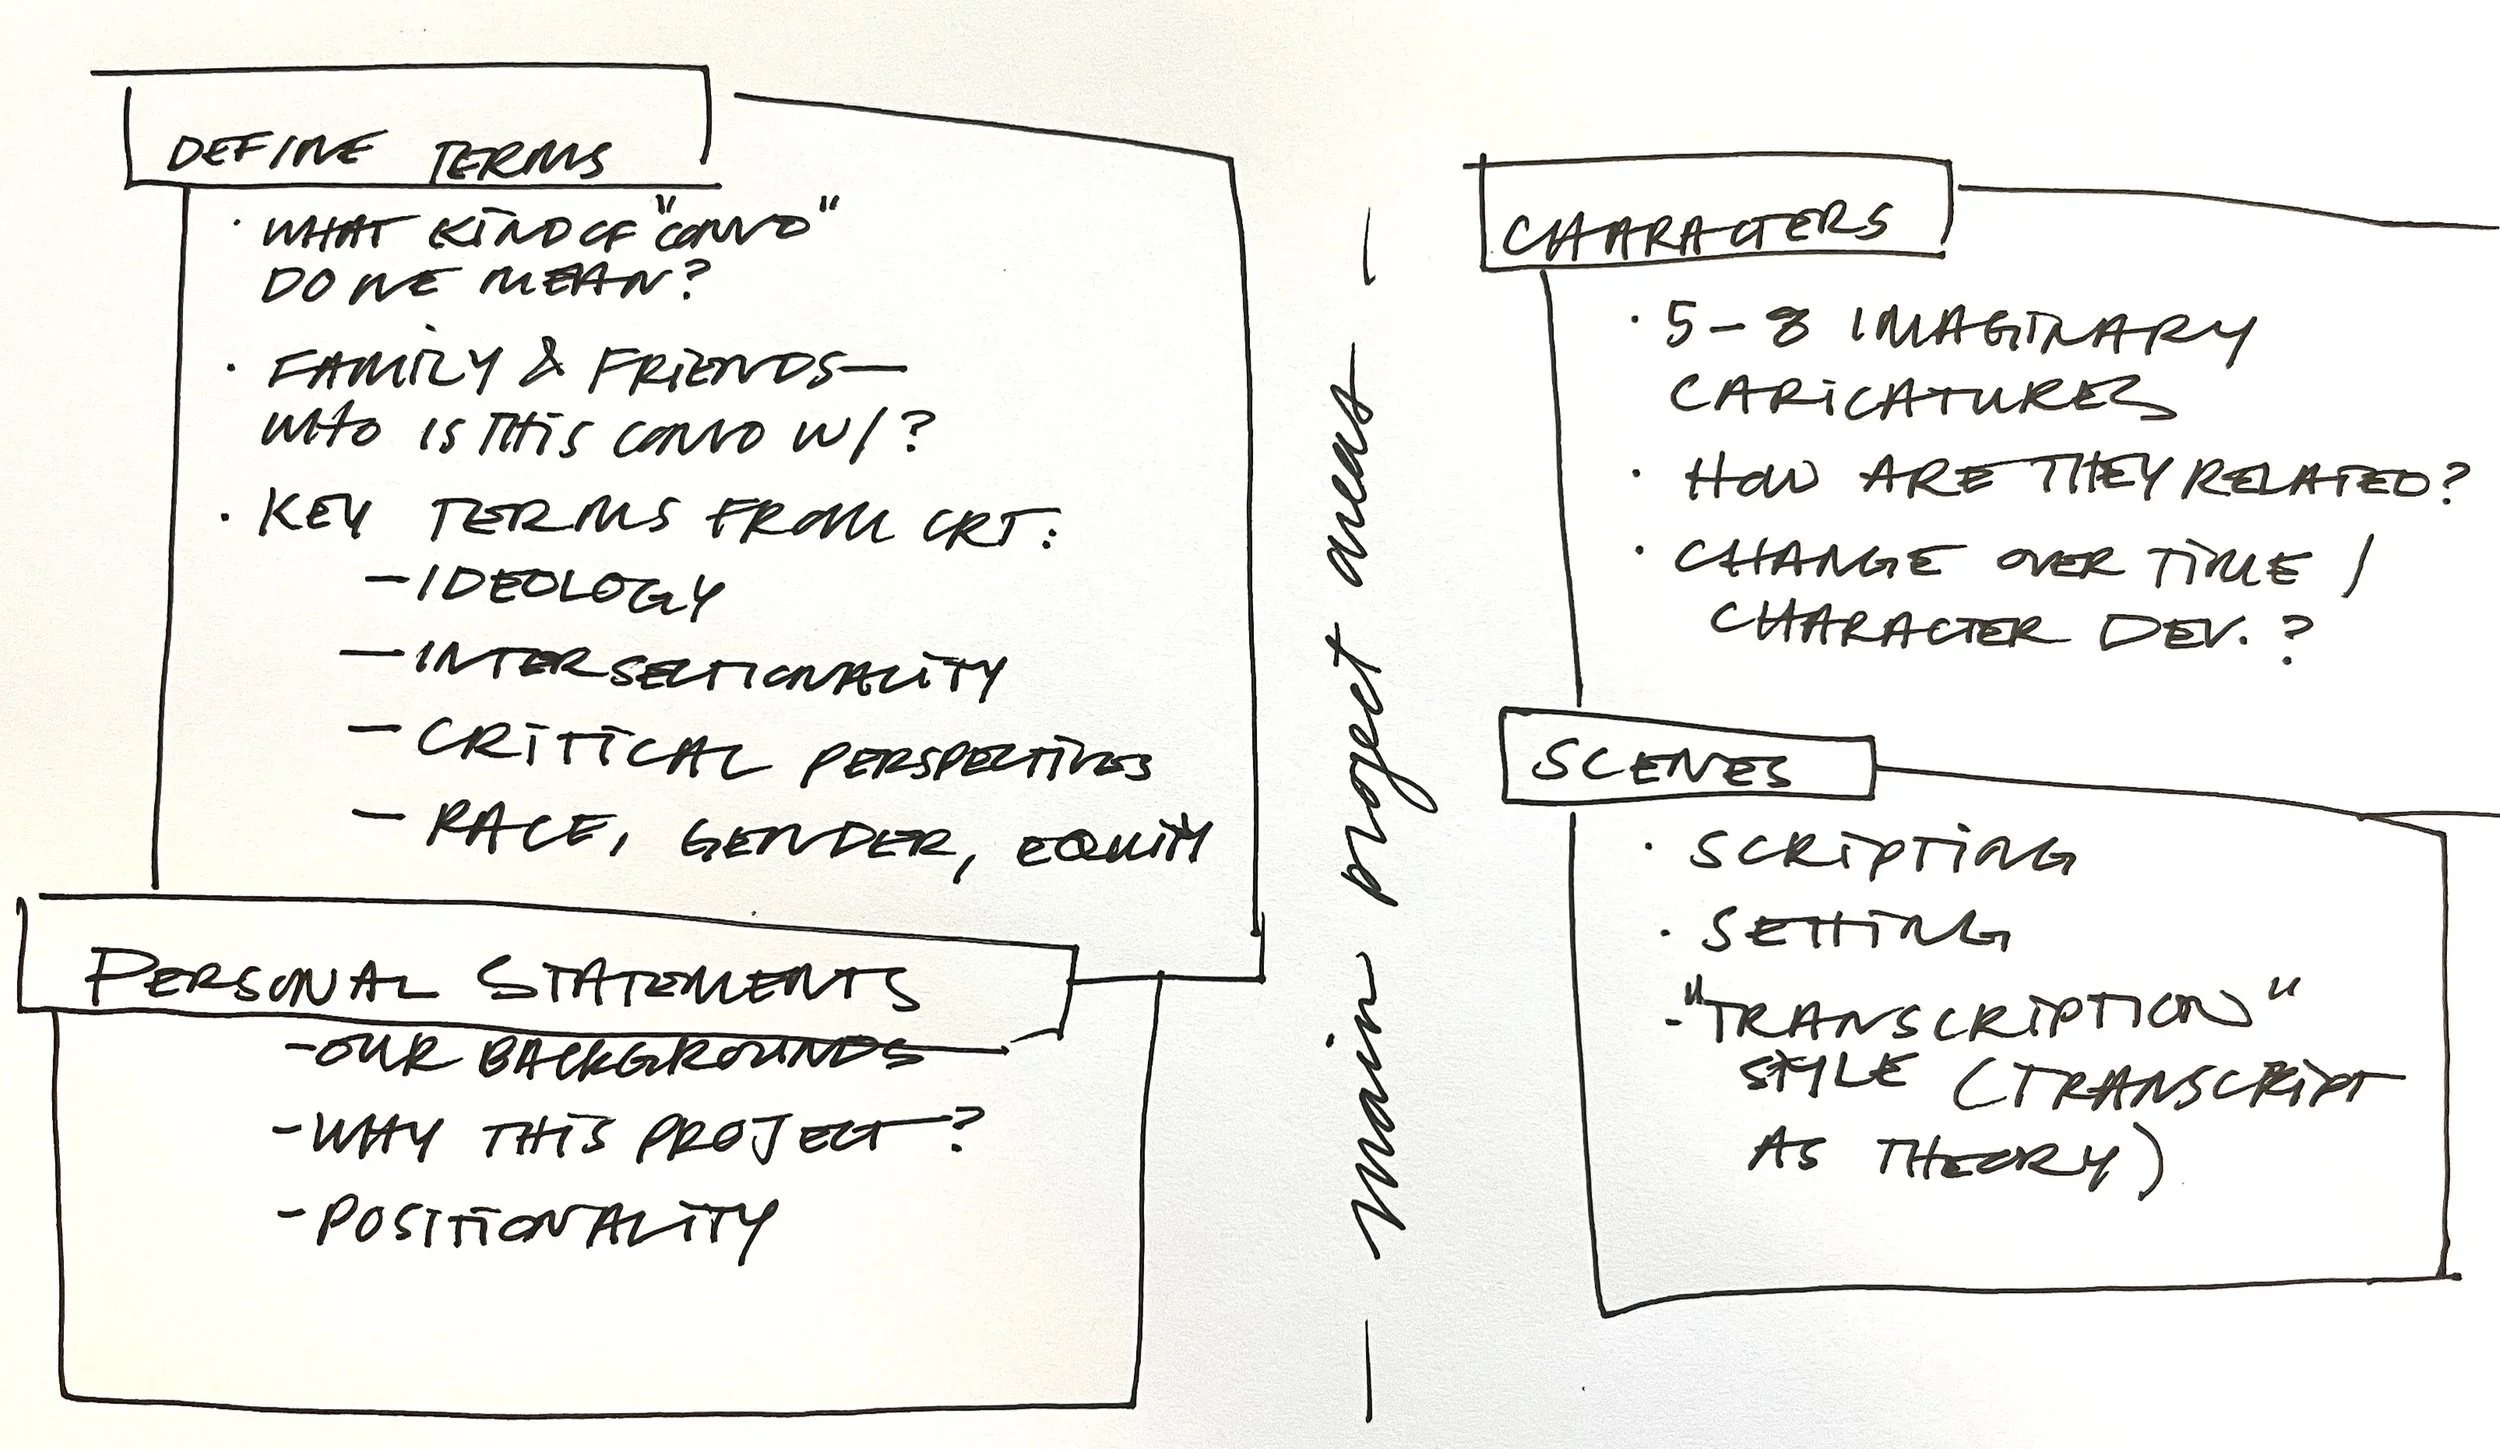 DEFINE TERMS
· WHAT KIND OF "CONVO"
DO WE MEAN?
· FAMILY & FRIENDS—
WHO IS THIS CONVO W/?
· KEY TERMS FROM CRT:
— IDEOLOGY
— INTERSECTIONALITY
— CRITICAL PERSPECTIVES
— RACE, GENDER, EQUITY
PERSONAL STATEMENTS
- OUR BACKGROUNDS
- WHY THIS PROJECT?
- POSITIONALITY
main project areas
CHARACTERS
· 5-8 IMAGINARY
CARICATURES
· HOW ARE THEY RELATED?
· CHANGE OVER TIME /
CHARACTER DEV.?
SCENES
· SCRIPTING
· SETTING
- "TRANSCRIPTION"
STYLE (TRANSCRIPT
AS THEORY)